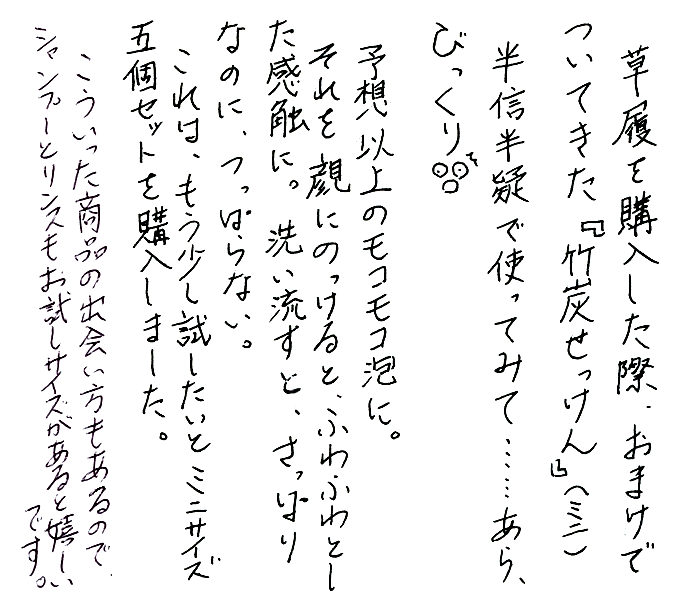 草履を購入した際、おまけで
ついてきた『竹炭せっけん』(ミニ)
半信半疑で使ってみて……あら、
びっくり
予想以上のモコモコ泡に。
それを顔にのっけると、ふわふわとし
た感触に。洗い流すと、さっぱり
なのに、つっぱらない。
これは、もう少し試したいとミニサイズ
五個セットを購入しました。
こういった商品の出会い方もあるので、
シャンプーとリンスもお試しサイズがあると嬉しい
です。